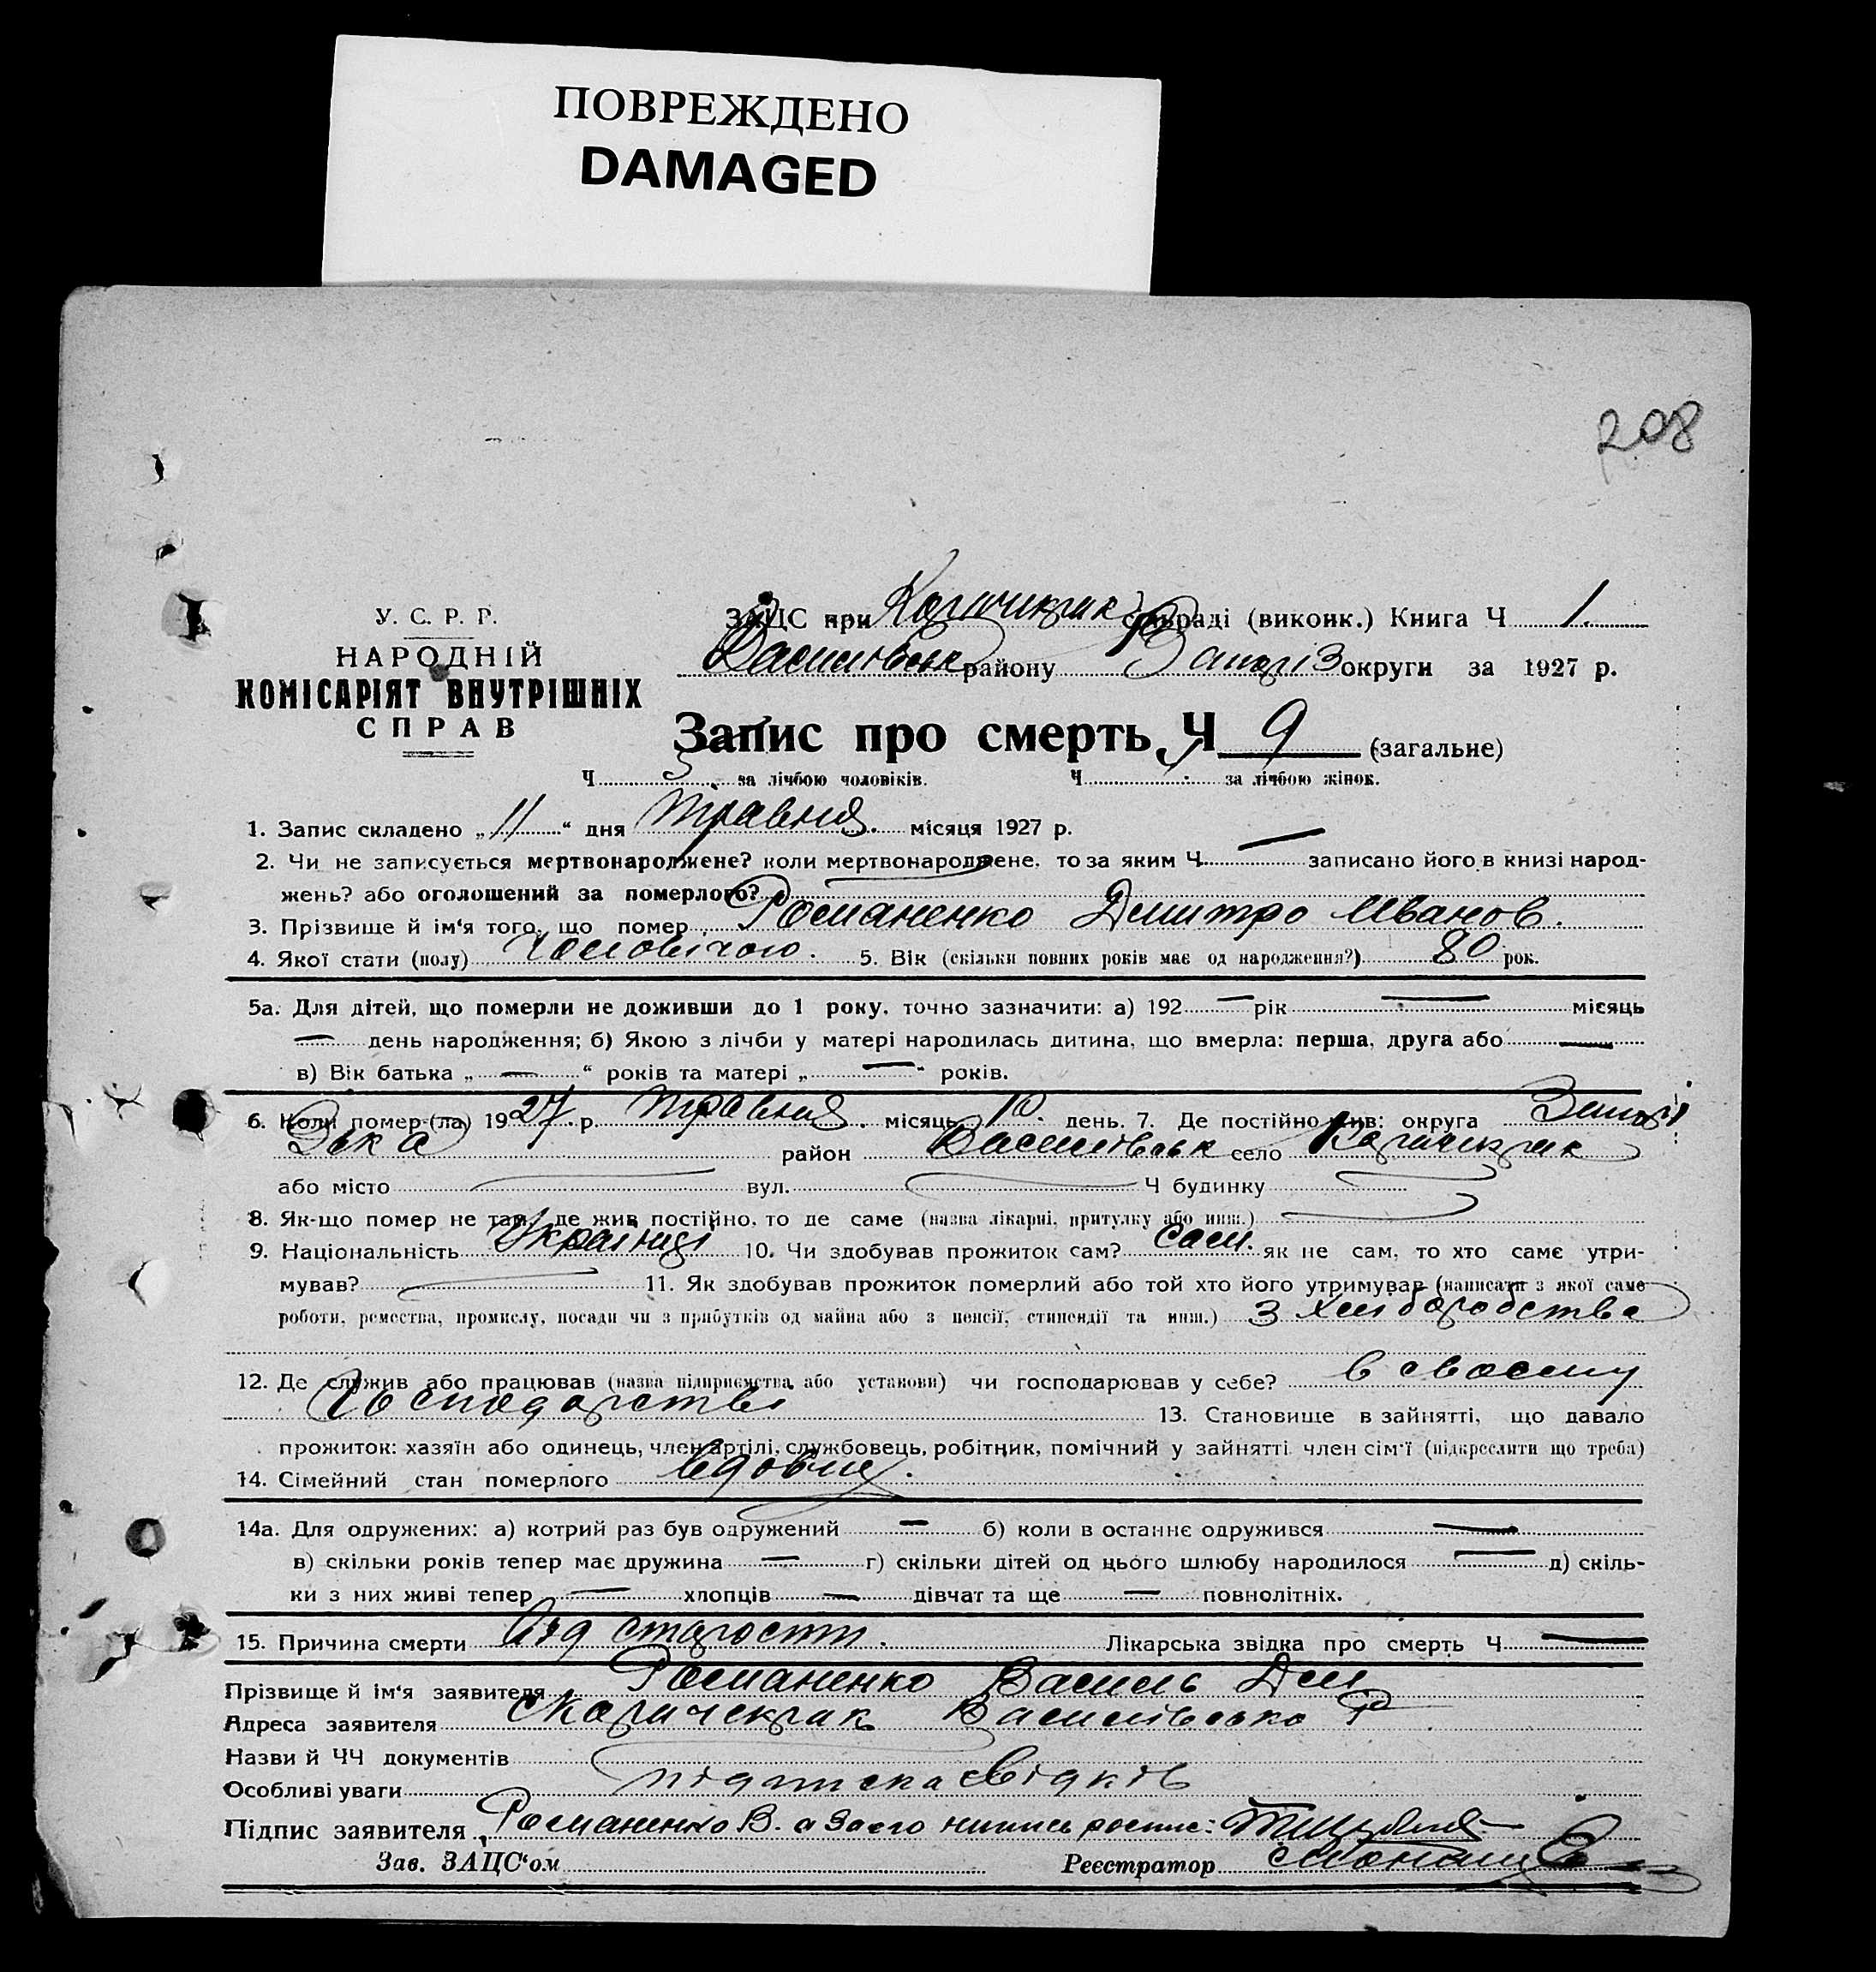 ПОВРЕЖДЕНО
DAMAGED
208
У. С. Р. Р.
НАРОДНІЙ
КОМІСАРІЯТ ВНУТРІШНІХ
СПРАВ
ЗАЦС при сільраді (виконк.) Книга Ч 1.
Василівськ району Запоріз округи за 1927 р.
Запис про смерть Ч 9 (загальне)
Ч 5 за лічбою чоловіків. Ч за лічбою жінок.
1. Запис складено „ 11 “ дня Травня. місяця 1927 р.
2. Чи не записується мертвонароджене? коли мертвонароджене, то за яким Ч — записано його в книзі народ-
жень? або оголошений за померлого?
3. Прізвище й ім‘я того, що помер Романенко Дмитро Иванов.
4. Якої стати (полу) Чоловічого. 5. Вік (скільки повних років має од народження?) 80 рок.
5а. Для дітей, що померли не доживши до 1 року, точно зазначити: а) 192 — рік — місяць
— день народження; б) Якою з лічби у матері народилась дитина, що вмерла: перша, друга або —
в) Вік батька „ — “ років та матері „ — “ років.
6. Коли помер (ла) 1927. р. травня. місяць 10. день. 7. Де постійно жив: округа Запорі
зька район Василівськ село
або місто вул. Ч будинку
8. Як-що помер не там, де жив постійно, то де саме (назва лікарні, притулку або инш.)
9. Національність 10. Чи здобував прожиток сам? сам. як не сам, то хто саме утри-
мував? 11. Як здобував прожиток померлий або той хто його утримував (написати з якої саме
роботи, ремества, промислу, посади чи з прибутків од майна або з пенсії, стипендії та инш.) з хліборобства
12. Де служив або працював (назва підприємства або установи) чи господарював у себе? в своєму
господарстві 13. Становище в зайнятті, що давало
прожиток: хазяїн або одинець, член артілі, службовець, робітник, помічний у зайнятті член сім‘ї (підкреслити що треба)
14. Сімейний стан померлого вдовец.
14а. Для одружених: а) котрий раз був одружений — б) коли в останнє одружився —
в) скільки років тепер має дружина — г) скільки дітей од цього шлюбу народилося — д) скіль-
ки з них живі тепер — хлопців — дівчат та ще — повнолітніх.
15. Причина смерти Від старости. Лікарська звідка про смерть Ч —
Прізвище й ім‘я заявителя Романенко Василь Дм
Адреса заявителя Василівсько Р
Назви й ЧЧ документів
Особливі уваги підписка свідків
Підпис заявителя Романенко В. а за его роспис:
Зав. ЗАЦС‘ом Реєстратор